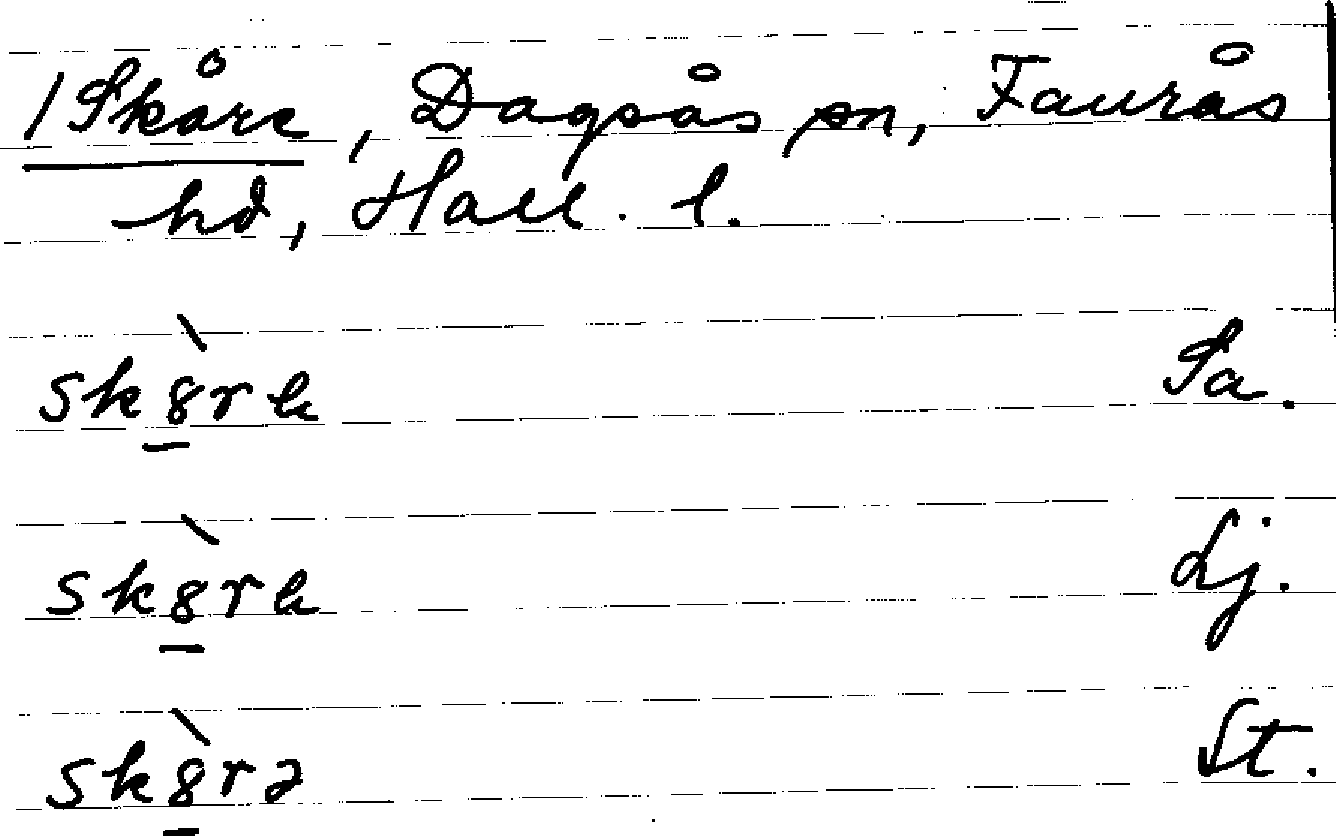 /Skåre, Dagsås sn, Faurås
hd, Hall. l.
sk8̲̀re Sa.
sk8̲̀re Lj.
sk8̲̀rə St.